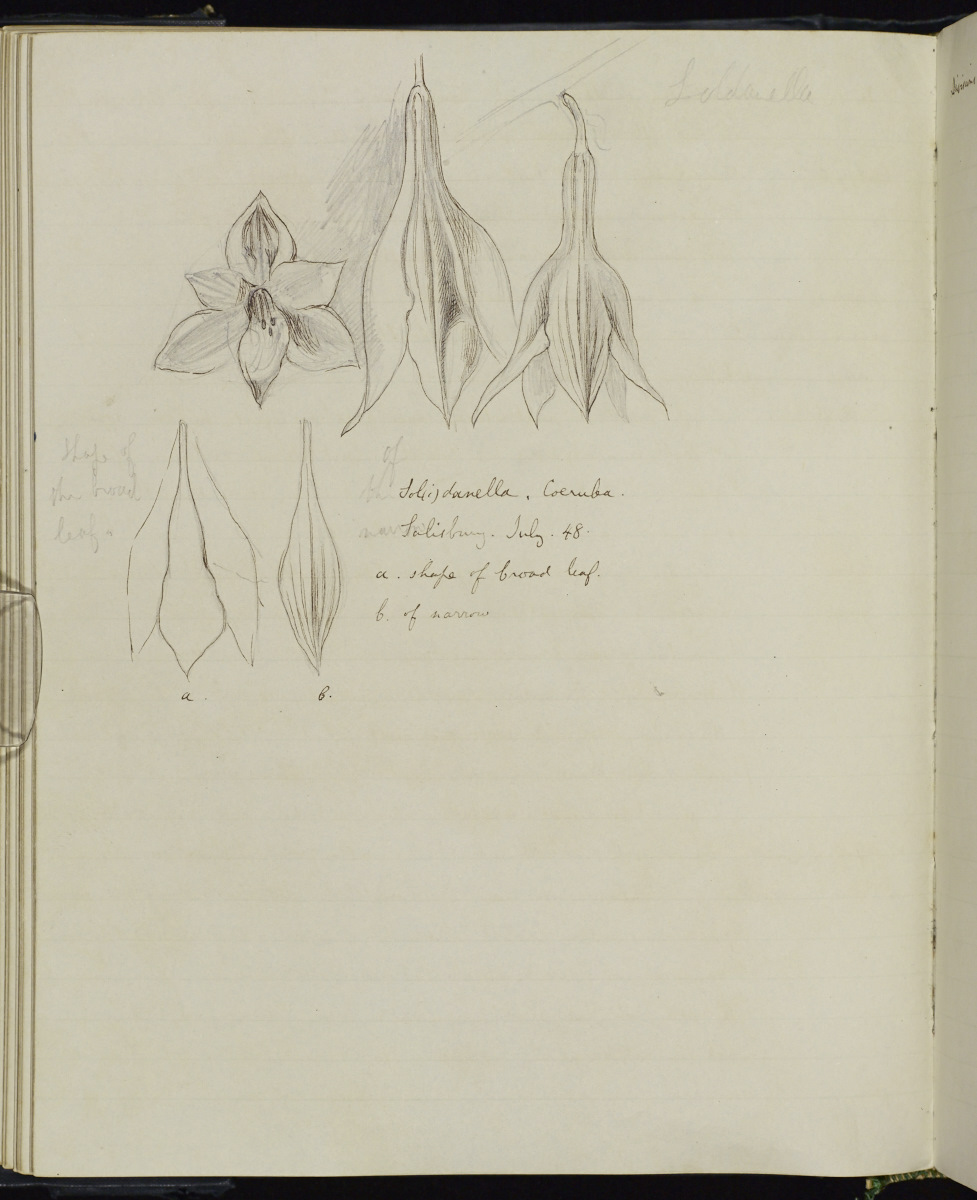 Soldanella
shape of
the broad
leaf.
of
Sol(i)danella. Coerulea.
Salisbury. July. 48.
a. shape of broad leaf.
b. of narrow
a.
b.